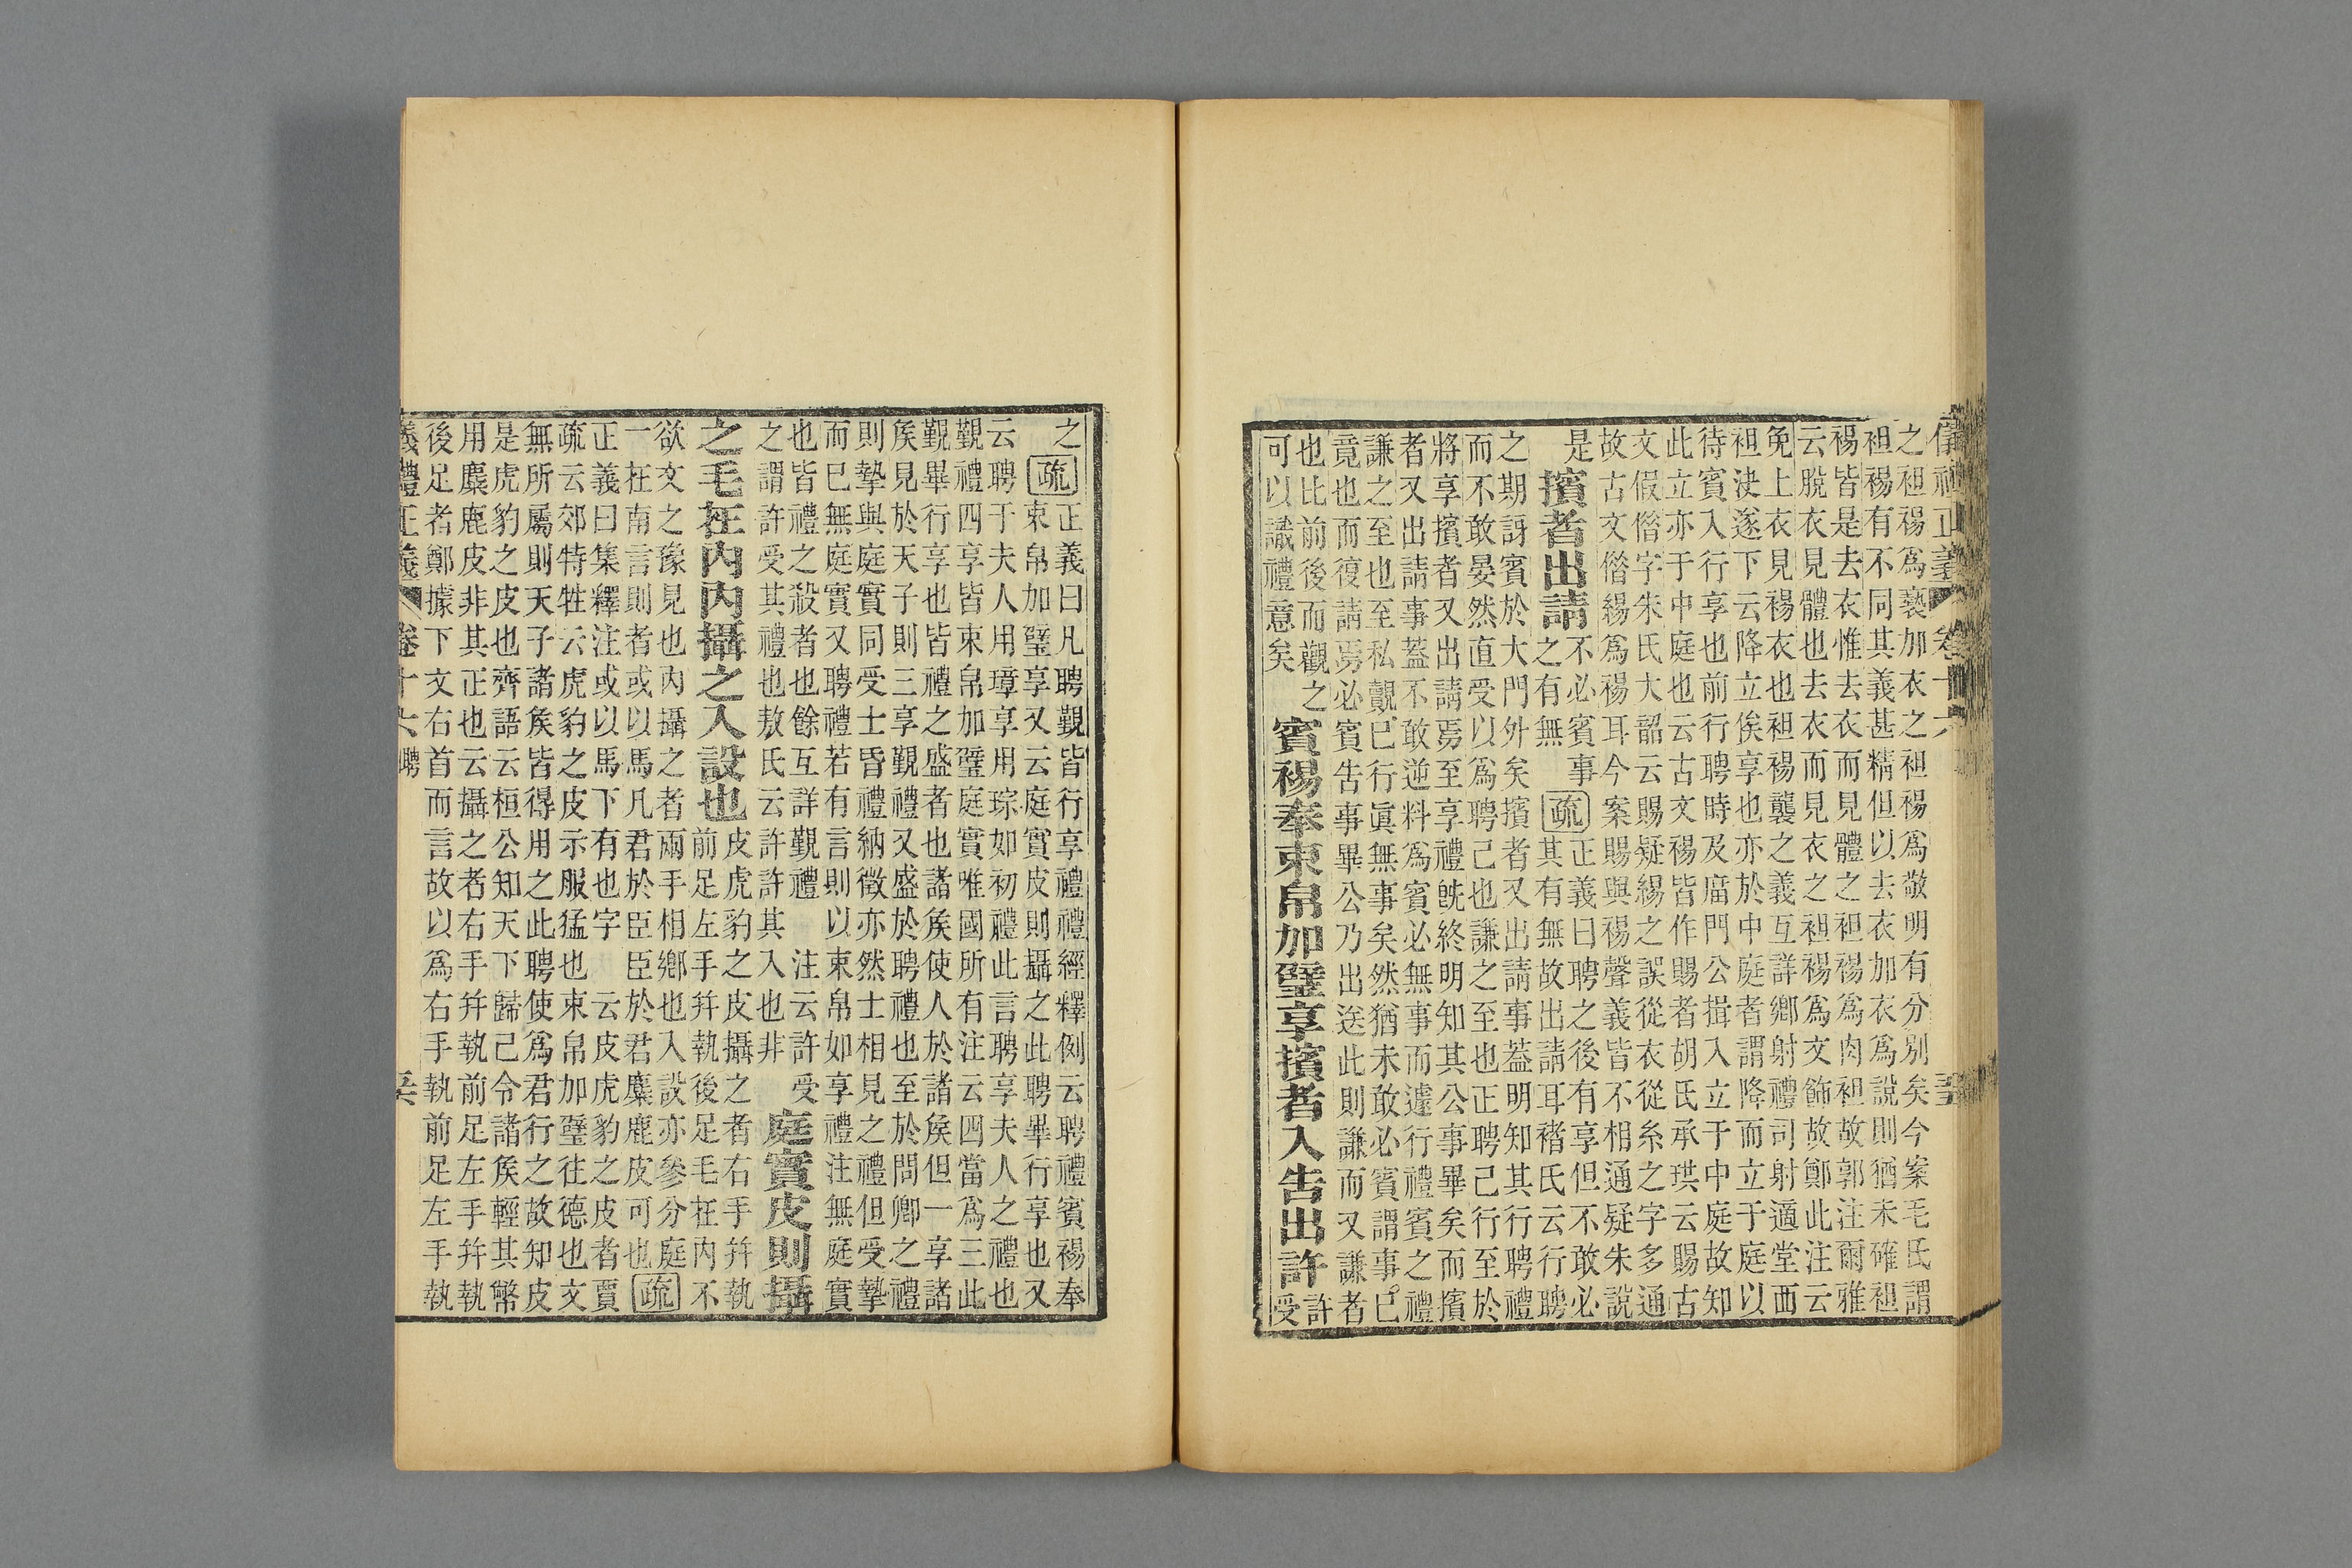 儀禮正義 卷十六
之袒裼爲褻加衣之袒裼爲敬明有分別矣今案毛氏謂
袒裼有不同其義甚精但以去衣加衣爲說則猶未確袒
裼皆是去衣惟去衣而見體之袒裼爲肉袒故郭注爾雅
云脫衣見體也去衣而見衣之袒裼爲文飾故鄭此注云
免上衣見裼衣也袒裼襲之義互詳鄉射禮司射適堂西
袒決遂下云降立俟享也亦於中庭者謂降而立于庭以
待賓入行享也前行聘時及庿門公揖入立于中庭故知
此立亦于中庭也云古文裼皆作賜者胡氏承珙云賜古
文假偕字朱氏大韶云賜疑緆之誤從衣從糸之字多通
故古文偕緆爲裼耳今案賜與裼聲義皆不相通疑朱說
是
擯者出請
不必賓事
之有無
疏
正義曰聘之後有享但不敢必
其有無故出請耳褚氏云行聘
之期訝賓於大門外矣擯者又出請事蓋明知其行聘禮
而不敢晏然直受以爲聘己也謙之至也正聘己行至於
將享擯者又出請焉至享禮旣終明知其公事畢矣而擯
者又出請事蓋不敢逆料爲賓必無事而遽行禮賓之禮
謙之至也至私覿已行眞無事矣然猶未敢必賓謂事已
竟也而復請焉必賓告事畢公乃出送此則謙而又謙者
也比前後而觀之
可以識禮意矣
賓裼奉束帛加璧享擯者入告出許
許
受
之
疏
正義曰凡聘覲皆行享禮禮經釋例云聘禮賓裼奉
束帛加璧享又云庭實皮則攝之此聘畢行享也又
云聘于夫人用璋享用琮如初禮此言聘享夫人之禮也
覲禮四享皆束帛加璧庭實唯國所有注云四當爲三此
覲畢行享也皆禮之盛者也諸矦使人於諸矦但一享諸
矦見於天子則三享覲禮又盛於聘禮也至於問卿之禮
則摯與庭實同受士昏禮納徵亦然士相見之禮但受摯
而已無庭實又聘禮若有言則以束帛如享禮注無庭實
也皆禮之殺者也餘互詳覲禮 注云許受
之謂許受其禮也敖氏云許許其入也非
庭實皮則攝
之毛在內內攝之入設也
皮虎豹之皮攝之者右手幷執
前足左手幷執後足毛在內不
欲文之豫見也內攝之者兩手相鄉也入設亦參分庭
一在南言則者或以馬凡君於臣臣於君麋鹿皮可也
疏
正義曰集釋注或以馬下有也字 云皮虎豹之皮者賈
疏云郊特牲云虎豹之皮示服猛也束帛加璧往德也文
無所屬則天子諸矦皆得用之此聘使爲君行之故知皮
是虎豹之皮也齊語云桓公知天下歸己令諸矦輕其幣
用麋鹿皮非其正也云攝之者右手幷執前足左手幷執
後足者鄭據下文右首而言故以爲右手執前足左手執
儀禮正義 卷十六 聘